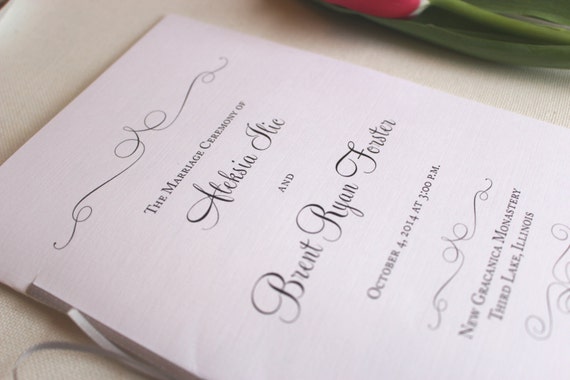 The Marriage Ceremony of
Aleksia Ilic
and
Brent Ryan Forster
October 4, 2014 at 3:00 p.m.
New Gracanica Monastery
Third Lake, Illinois